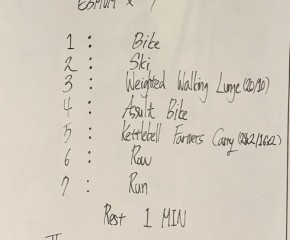 1 : Bike
2 : Ski
3 : Weighted Walking Lunge (20/10)
4 : Assult Bike
5 : Kettlebell Farmers Carry
6 : Row
7 : Run
Rest 1 MIN
II